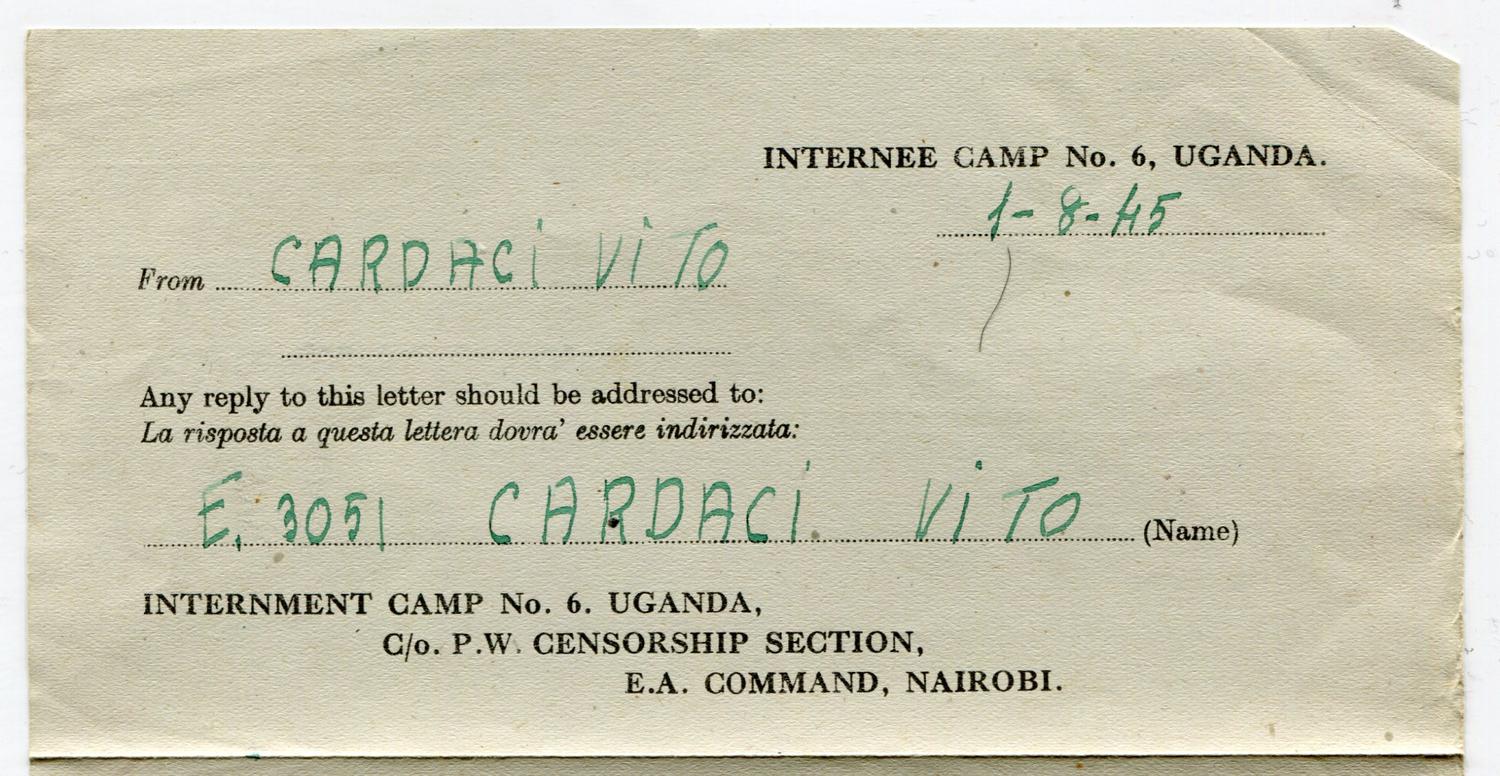 INTERNEE CAMP No. 6, UGANDA.
1-8-45
From CARDACI VITO
Any reply to this letter should be addressed to:
La risposta a questa lettera dovra' essere indirizzata:
E. 3051 CARDACI VITO (Name)
INTERNMENT CAMP No. 6. UGANDA,
C/o. P.W. CENSORSHIP SECTION,
E.A. COMMAND, NAIROBI.